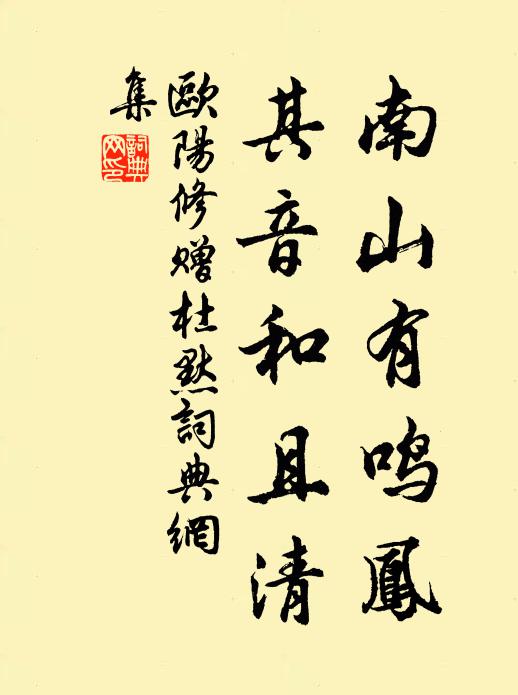 南山有鸣鳳
其音和且清
歐陽修赠杜默詞典網
集
詞典
网印